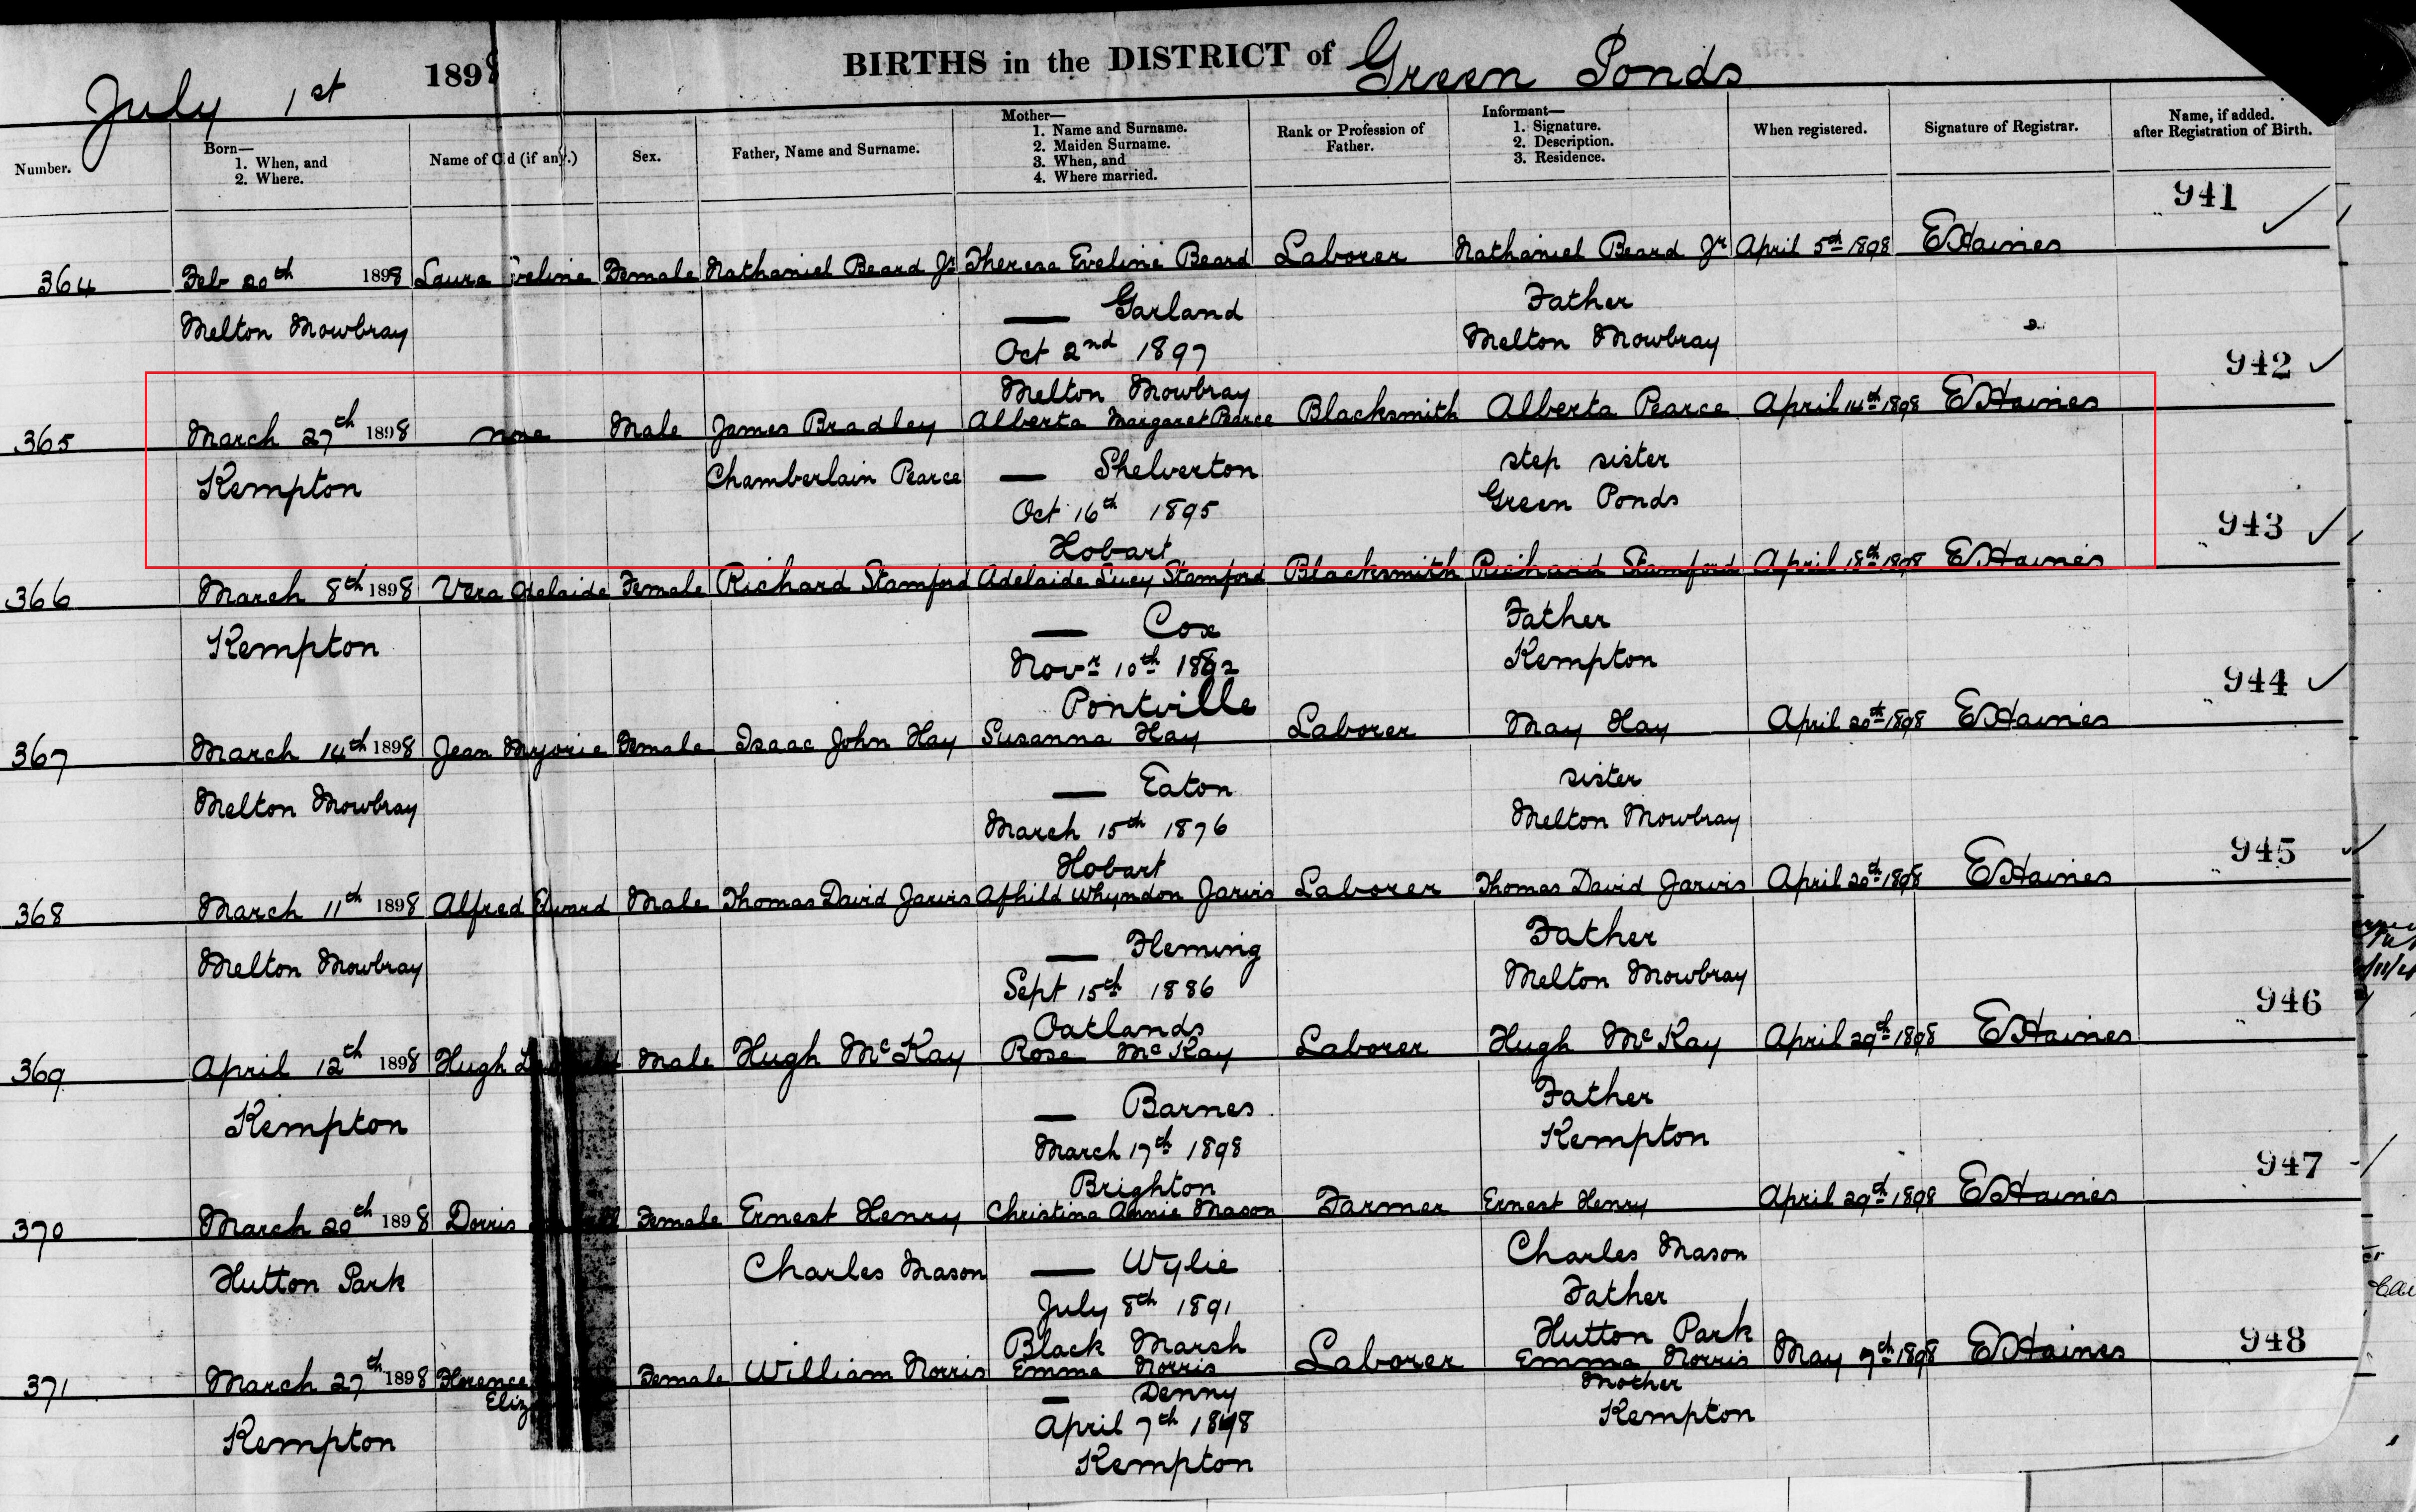 July 1st 1898 BIRTHS in the DISTRICT of Green Ponds
Number.
Born—
1. When, and
2. Where.
Name of C d (if any.)
Sex.
Father, Name and Surname.
Mother—
1. Name and Surname.
2. Maiden Surname.
3. When, and
4. Where married.
Rank or Profession of
Father.
Informant—
1. Signature.
2. Description.
3. Residence.
When registered.
Signature of Registrar.
Name, if added.
after Registration of Birth.
941
364 Feb 20th 1898 Laura Eveline Female Nathaniel Beard Jr Theresa Eveline Beard Laborer Nathaniel Beard Jr April 5th 1898 E Haines
Melton Mowbray — Garland Father
Oct 2nd 1897 Melton Mowbray
Melton Mowbray
942
365 March 27th 1898 none Male James Bradley Alberta Margaret Pearce Blacksmith Alberta Pearce April 14th 1898 E Haines
Kempton Chamberlain Pearce — Shelverton step sister
Oct 16th 1895 Green Ponds
Hobart
943
366 March 8th 1898 Vera Adelaide Female Richard Stamford Adelaide Lucy Stamford Blacksmith Richard Stamford April 18th 1898 E Haines
Kempton — Cox Father
Novr 10th 1892 Kempton
Pontville
944
367 March 14th 1898 Jean Mrjorie Female Isaac John Hay Susanna Hay Laborer May Hay April 20th 1898 E Haines
Melton Mowbray — Eaton sister
March 15th 1876 Melton Mowbray
Hobart
945
368 March 11th 1898 Alfred Edward Male Thomas David Jarvis Afhild Whyndon Jarvis Laborer Thomas David Jarvis April 20th 1898 E Haines
Melton Mowbray — Fleming Father
Sept 15th 1886 Melton Mowbray
Oatlands
946
369 April 12th 1898 Hugh Male Hugh McKay Rose McKay Laborer Hugh McKay April 29th 1898 E Haines
Kempton — Barnes Father
March 17th 1898 Kempton
Brighton
947
370 March 20th 1898 Dorris Female Ernest Henry Christina Annie Mason Farmer Ernest Henry April 29th 1898 E Haines
Hutton Park Charles Mason — Wylie Charles Mason
July 8th 1891 Father
Black Marsh Hutton Park
948
371 March 27th 1898 Florence Female William Norris Emma Norris Laborer Emma Norris May 7th 1898 E Haines
Eliz — Denny Mother
Kempton April 7th 1898 Kempton
Kempton